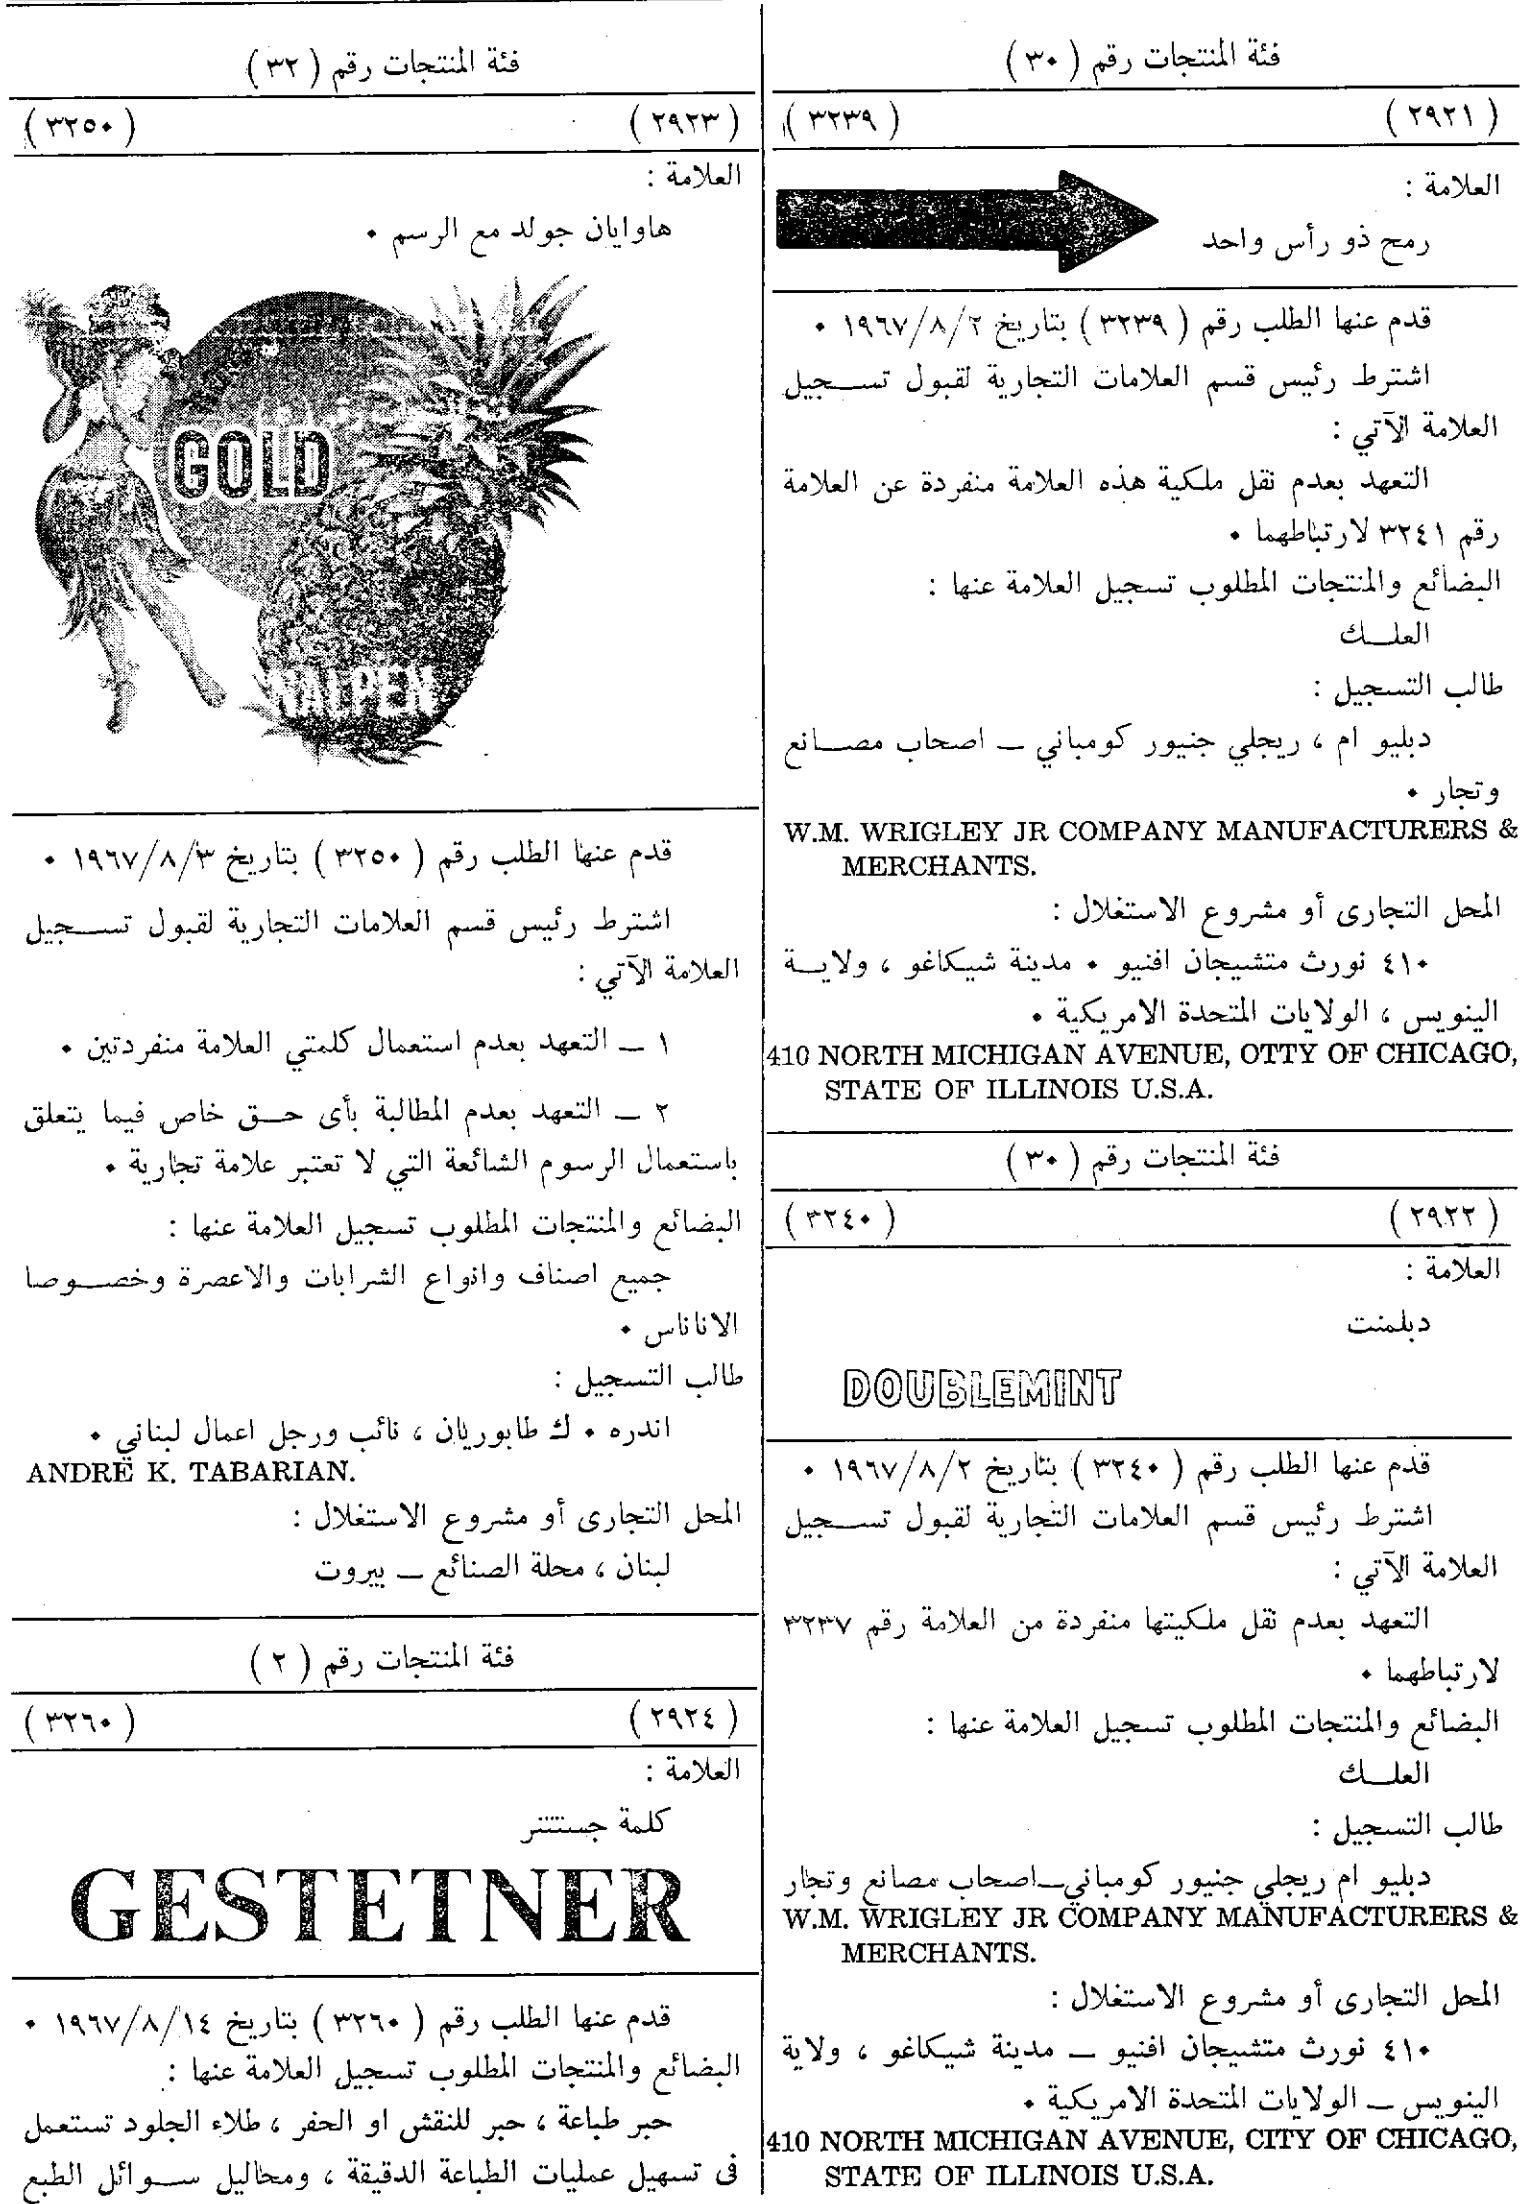 فئة المنتجات رقم ( ٣٠ )
( ٢٩٢١ ) ( ٣٢٣٩ )
العلامة :
رمح ذو رأس واحد
قدم عنها الطلب رقم ( ٣٢٣٩ ) بتاريخ ١٩٦٧/٨/٢ ٠
اشترط رئيس قسم العلامات التجارية لقبول تســجيل
العلامة الآتي :
التعهد بعدم نقل ملكية هذه العلامة منفردة عن العلامة
رقم ٣٢٤١ لارتباطهما ٠
البضائع والمنتجات المطلوب تسجيل العلامة عنها :
العلــك
طالب التسجيل :
دبليو ام ، ريجلي جنيور كومباني ــ اصحاب مصــانع
وتجار ٠
W.M. WRIGLEY JR COMPANY MANUFACTURERS &
MERCHANTS.
المحل التجارى أو مشروع الاستغلال :
٤١٠ نورث متشيجان افنيو ٠ مدينة شيكاغو ، ولايــة
الينويس ، الولايات المتحدة الامريكية ٠
410 NORTH MICHIGAN AVENUE, OTTY OF CHICAGO,
STATE OF ILLINOIS U.S.A.
فئة المنتجات رقم ( ٣٠ )
( ٢٩٢٢ ) ( ٣٢٤٠ )
العلامة :
دبلمنت
DOUBLEMINT
قدم عنها الطلب رقم ( ٣٢٤٠ ) بتاريخ ١٩٦٧/٨/٢ ٠
اشترط رئيس قسم العلامات التجارية لقبول تســجيل
العلامة الآتي :
التعهد بعدم نقل ملكيتها منفردة من العلامة رقم ٣٢٣٧
لارتباطهما ٠
البضائع والمنتجات المطلوب تسجيل العلامة عنها :
العلــك
طالب التسجيل :
دبليو ام ريجلي جنيور كومباني ــ اصحاب مصانع وتجار
W.M. WRIGLEY JR COMPANY MANUFACTURERS &
MERCHANTS.
المحل التجارى أو مشروع الاستغلال :
٤١٠ نورث متشيجان افنيو ــ مدينة شيكاغو ، ولاية
الينويس ــ الولايات المتحدة الامريكية ٠
410 NORTH MICHIGAN AVENUE, CITY OF CHICAGO,
STATE OF ILLINOIS U.S.A.
فئة المنتجات رقم ( ٣٢ )
( ٢٩٢٣ ) ( ٣٢٥٠ )
العلامة :
هاوايان جولد مع الرسم ٠
GOLD
قدم عنها الطلب رقم ( ٣٢٥٠ ) بتاريخ ١٩٦٧/٨/٣ ٠
اشترط رئيس قسم العلامات التجارية لقبول تســجيل
العلامة الآتي :
١ ــ التعهد بعدم استعمال كلمتي العلامة منفردتين ٠
٢ ــ التعهد بعدم المطالبة بأى حــق خاص فيما يتعلق
باستعمال الرسوم الشائعة التي لا تعتبر علامة تجارية ٠
البضائع والمنتجات المطلوب تسجيل العلامة عنها :
جميع اصناف وانواع الشرابات والاعصرة وخصــوصا
الاناناس ٠
طالب التسجيل :
اندره ٠ ك طابوريان ، نائب ورجل اعمال لبناني ٠
ANDRË K. TABARIAN.
المحل التجارى أو مشروع الاستغلال :
لبنان ، محلة الصنائع ــ بيروت
فئة المنتجات رقم ( ٢ )
( ٢٩٢٤ ) ( ٣٢٦٠ )
العلامة :
كلمة جستتنر
GESTETNER
قدم عنها الطلب رقم ( ٣٢٦٠ ) بتاريخ ١٩٦٧/٨/١٤ ٠
البضائع والمنتجات المطلوب تسجيل العلامة عنها :
حبر طباعة ، حبر للنقش او الحفر ، طلاء الجلود تستعمل
فى تسهيل عمليات الطباعة الدقيقة ، ومحاليل ســوائل الطبع